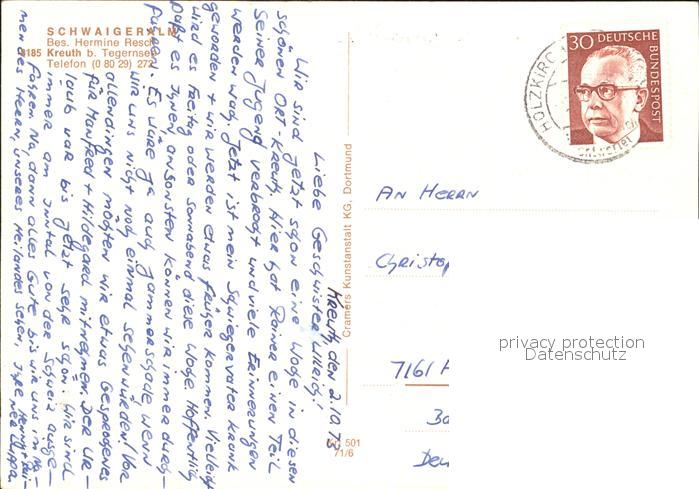 SCHWAIGERALM
Bes. Hermine Resch
8185 Kreuth b. Tegernsee
Telefon (0 80 29) 272
Kreuth, den 2.10.73
Liebe Geschwister Willrich!
Wir sind jetzt schon eine Woche in diesen
schönen Ort - Kreuth. Hier hat Rainer einen Teil
seiner Jugend verbracht und viele Erinnerungen
werden wach. Jetzt ist mein Schwiegervater krank
geworden + wir werden etwas früher kommen. Vielleicht
wird es Freitag oder Sonnabend diese Woche. Hoffentlich
paßt es Ihnen, ansonsten können wir immer durch-
fahren. Es wäre ja auch jammerschade wenn
wir uns nicht noch einmal sehen würden! Vor
allendingen möchten wir etwas Gesprochenes
für Manfred + Hildegard mitnehmen. Der Ur-
laub war bis jetzt sehr schön. Wir sind
immer am Inntal von der Schweiz ausge-
fahren. Na, dann alles Gute bis wir uns im Na-
men des Herrn, unseres Heilandes sehen, Ihre Henny + Rai-
ner
Cramers Kunstanstalt KG, Dortmund
501
71/6
30 DEUTSCHE
BUNDESPOST
HOLZKIRC
An Herrn
Christop
7161
privacy protection
Datenschutz